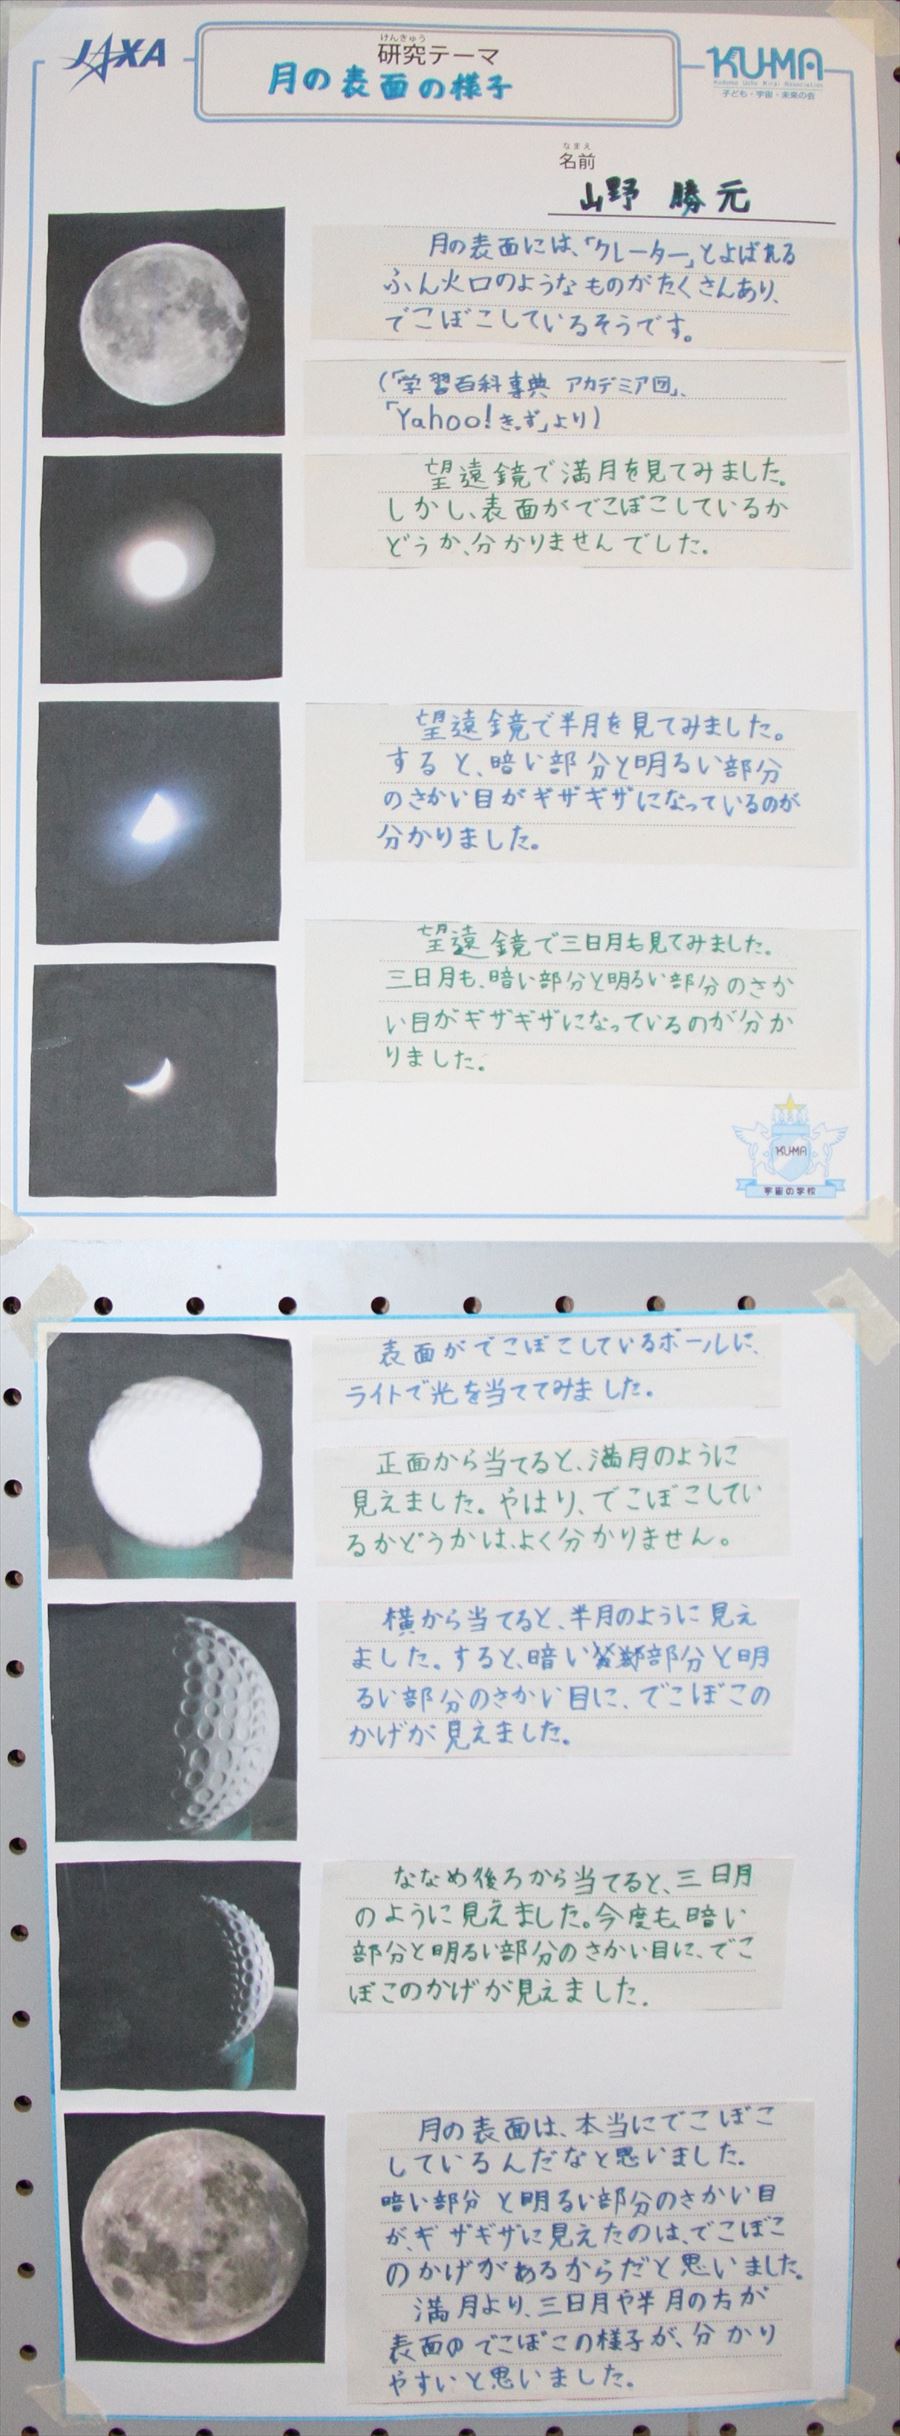 JAXA
けんきゅう
研究テーマ
月の表面の様子
KU-MA
Kodomo Uchu Mirai Association
子ども・宇宙・未来の会
なまえ
名前
山野 勝元
月の表面には、「クレーター」とよばれる
ふん火口のようなものがたくさんあり、
でこぼこしているそうです。
(「学習百科事典 アカデミア図」、
「Yahoo!きっず」より)
望遠鏡で満月を見てみました。
しかし、表面がでこぼこしているか
どうか、分かりませんでした。
望遠鏡で半月を見てみました。
すると、暗い部分と明るい部分
のさかい目がギザギザになっているのが
分かりました。
望遠鏡で三日月も見てみました。
三日月も、暗い部分と明るい部分のさか
い目がギザギザになっているのが分か
りました。
KU-MA
宇宙の学校
表面がでこぼこしているボールに、
ライトで光を当ててみました。
正面から当てると、満月のように
見えました。やはり、でこぼこしてい
るかどうかは、よく分かりません。
横から当てると、半月のように見え
ました。すると、暗い部分と明
るい部分のさかい目に、でこぼこの
かげが見えました。
ななめ後ろから当てると、三日月
のように見えました。今度も、暗い
部分と明るい部分のさかい目に、でこ
ぼこのかげが見えました。
月の表面は、本当にでこぼこ
しているんだなと思いました。
暗い部分と明るい部分のさかい目
が、ギザギザに見えたのは、でこぼこ
のかげがあるからだと思いました。
満月より、三日月や半月の方が
表面のでこぼこの様子が、分かり
やすいと思いました。